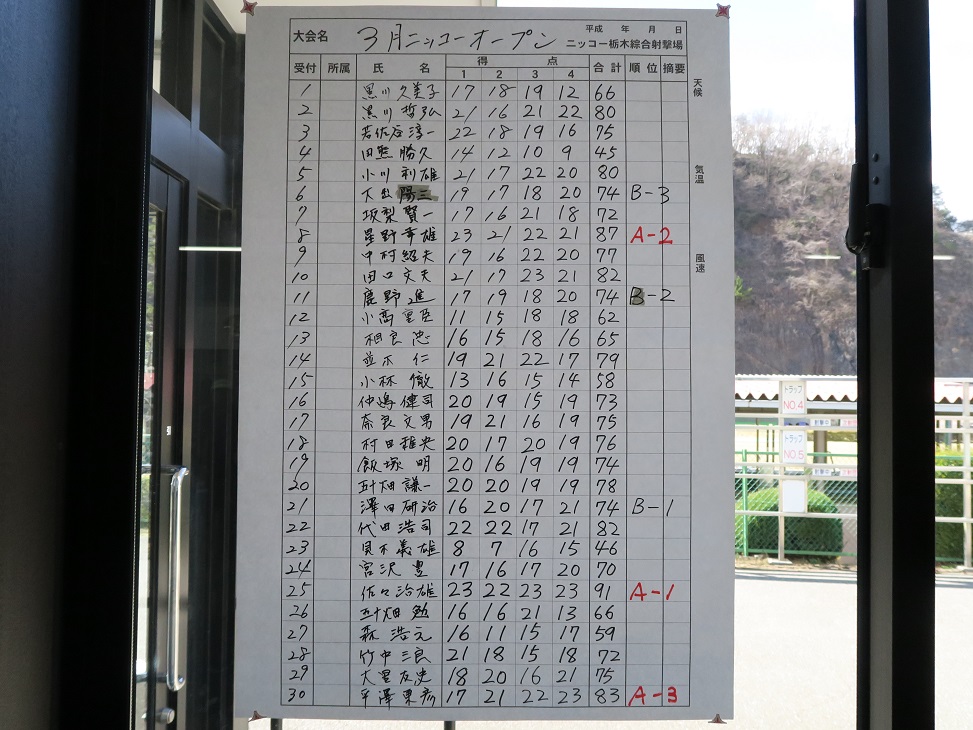 大会名 3月ニッコーオープン 平成 年 月 日
ニッコー栃木綜合射撃場
受付 所属 氏 名 得 点 合計 順位 摘要
1 2 3 4
天候
気温
風速
1 黒川久美子 17 18 19 12 66
2 黒川哲弘 21 16 21 22 80
3 若佐谷淳一 22 18 19 16 75
4 田熊勝久 14 12 10 9 45
5 小川利雄 21 17 22 20 80
6 大出陽三 19 17 18 20 74 B-3
7 坂梨賢一 17 16 21 18 72
8 星野幸雄 23 21 22 21 87 A-2
9 中村紹夫 19 16 22 20 77
10 田口文夫 21 17 23 21 82
11 鹿野進 17 19 18 20 74 B-2
12 小高重臣 11 15 18 18 62
13 相良忠 16 15 18 16 65
14 並木仁 19 21 22 17 79
15 小林徹 13 16 15 14 58
16 仲嶋健司 20 19 15 19 73
17 奈良文男 19 21 16 19 75
18 村田雅央 20 17 20 19 76
19 飯塚明 20 16 19 19 74
20 五十畑謙一 20 20 19 19 78
21 澤田研治 16 20 17 21 74 B-1
22 代田浩司 22 22 17 21 82
23 義雄 8 7 16 15 46
24 宮沢豊 17 16 17 20 70
25 佐々治雄 23 22 23 23 91 A-1
26 五十畑勉 16 16 21 13 66
27 森浩元 16 11 15 17 59
28 竹中三良 21 18 15 18 72
29 大里友史 18 20 16 21 75
30 平澤 17 21 22 23 83 A-3
トラップ
NO.4
トラップ
NO.5